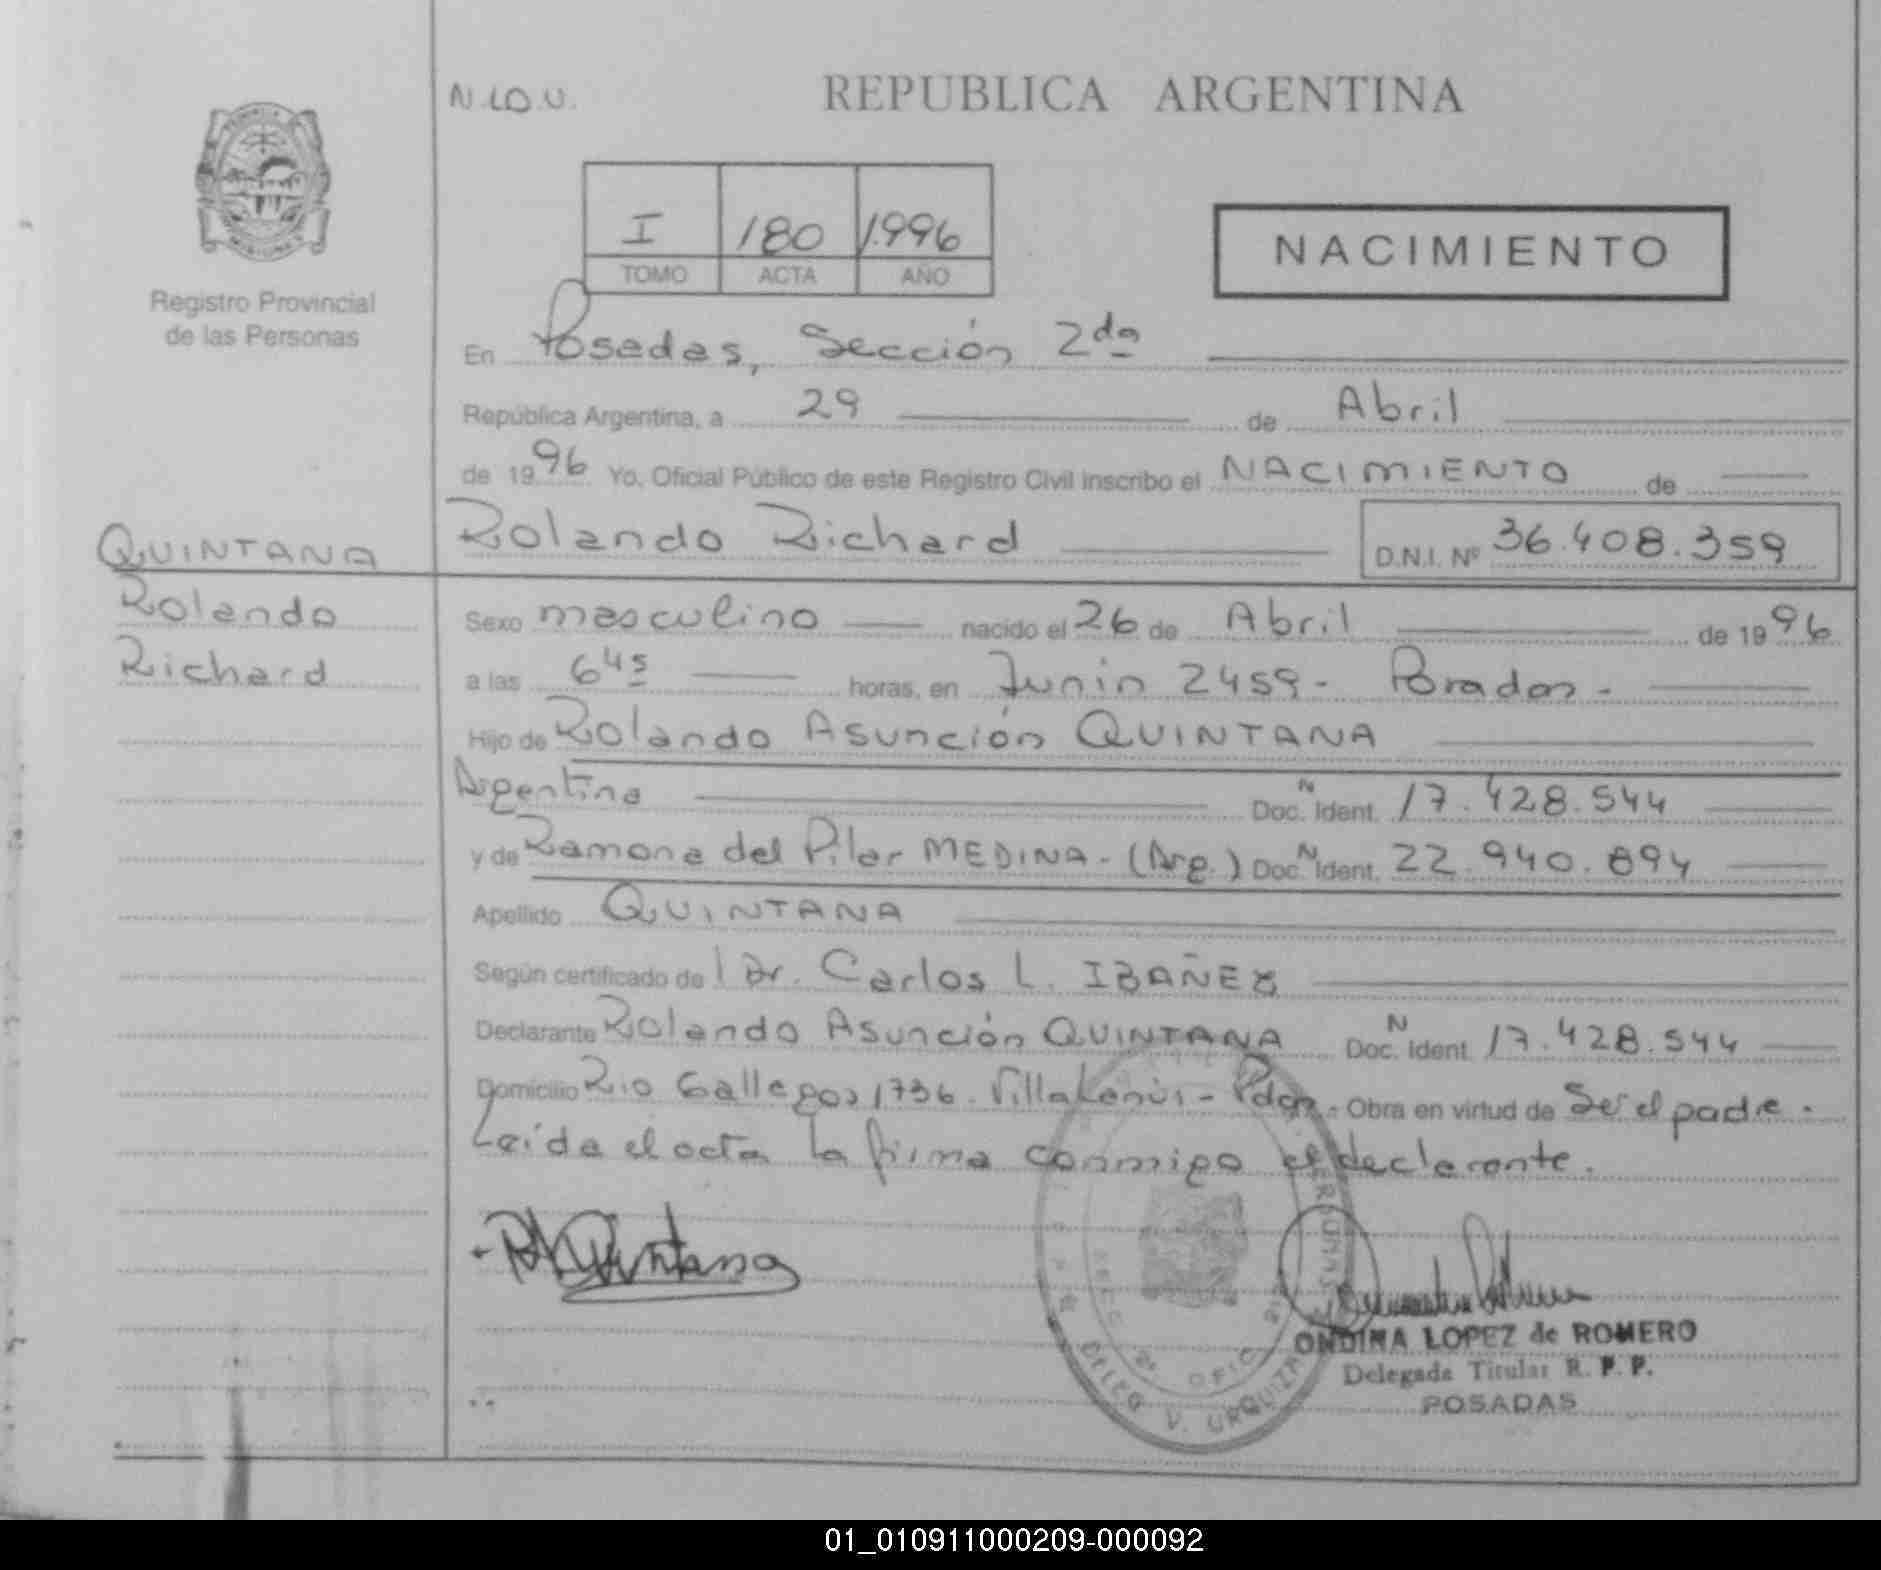 N.LO.U.
REPUBLICA ARGENTINA
I 180 1.996
TOMO ACTA AÑO
NACIMIENTO
Registro Provincial
de las Personas
En Posadas, Sección 2da
República Argentina, a 29 de Abril
de 1996 Yo, Oficial Público de este Registro Civil inscribo el NACIMIENTO de
Rolando Richard D.N.I. Nº 36.408.359
QUINTANA
Rolando
Richard
Sexo masculino nacido el 26 de Abril de 1996
a las 6 45 horas, en Junin 2459- Posadas-
Hijo de Rolando Asunción QUINTANA
Argentina Doc. N Ident. 17.428.544
y de Ramona del Pilar MEDINA-(Arg.) Doc. N Ident. 22.940.894
Apellido QUINTANA
Según certificado del Dr. Carlos L. IBAÑEZ
Declarante Rolando Asunción QUINTANA Doc. N Ident. 17.428.544
Domicilio Rio Gallegos 1736. Villa Lanús- Pdas.- Obra en virtud de Ser el padre.
Leída el acta la firma conmigo el declarante.
Quintana
ONDINA LOPEZ de ROMERO
Delegada Titular R. P. P.
POSADAS
SECC 2ª OFIC
DELEG V. URQUIZA
01_010911000209-000092